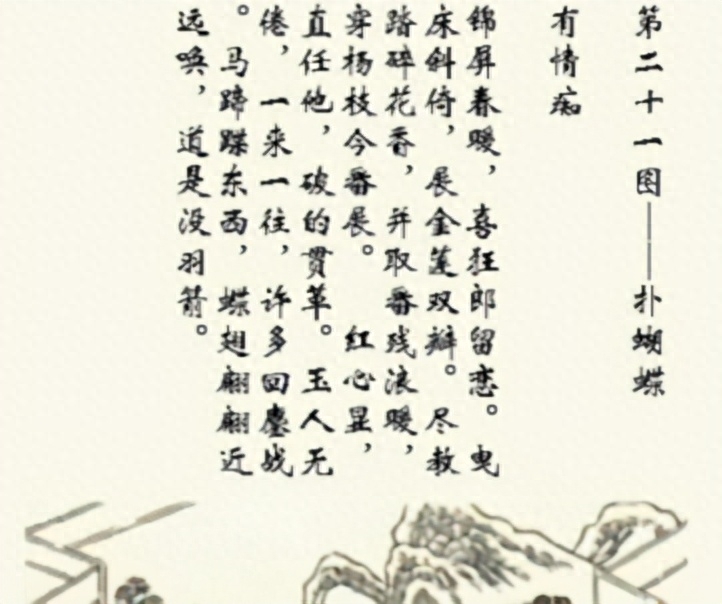 第二十一图——扑蝴蝶
有情痴
锦屏春暖，喜狂郎留恋。曳
床斜倚，展金莲双瓣。尽教
踏碎花香，并取番残浪暖，
穿杨枝今番展。 红心显，
直任他，破的贯革。玉人无
倦，一来一往，许多回鏖战
。马蹄蹀东西，蝶翅翩翩近
远唤，道是没羽箭。